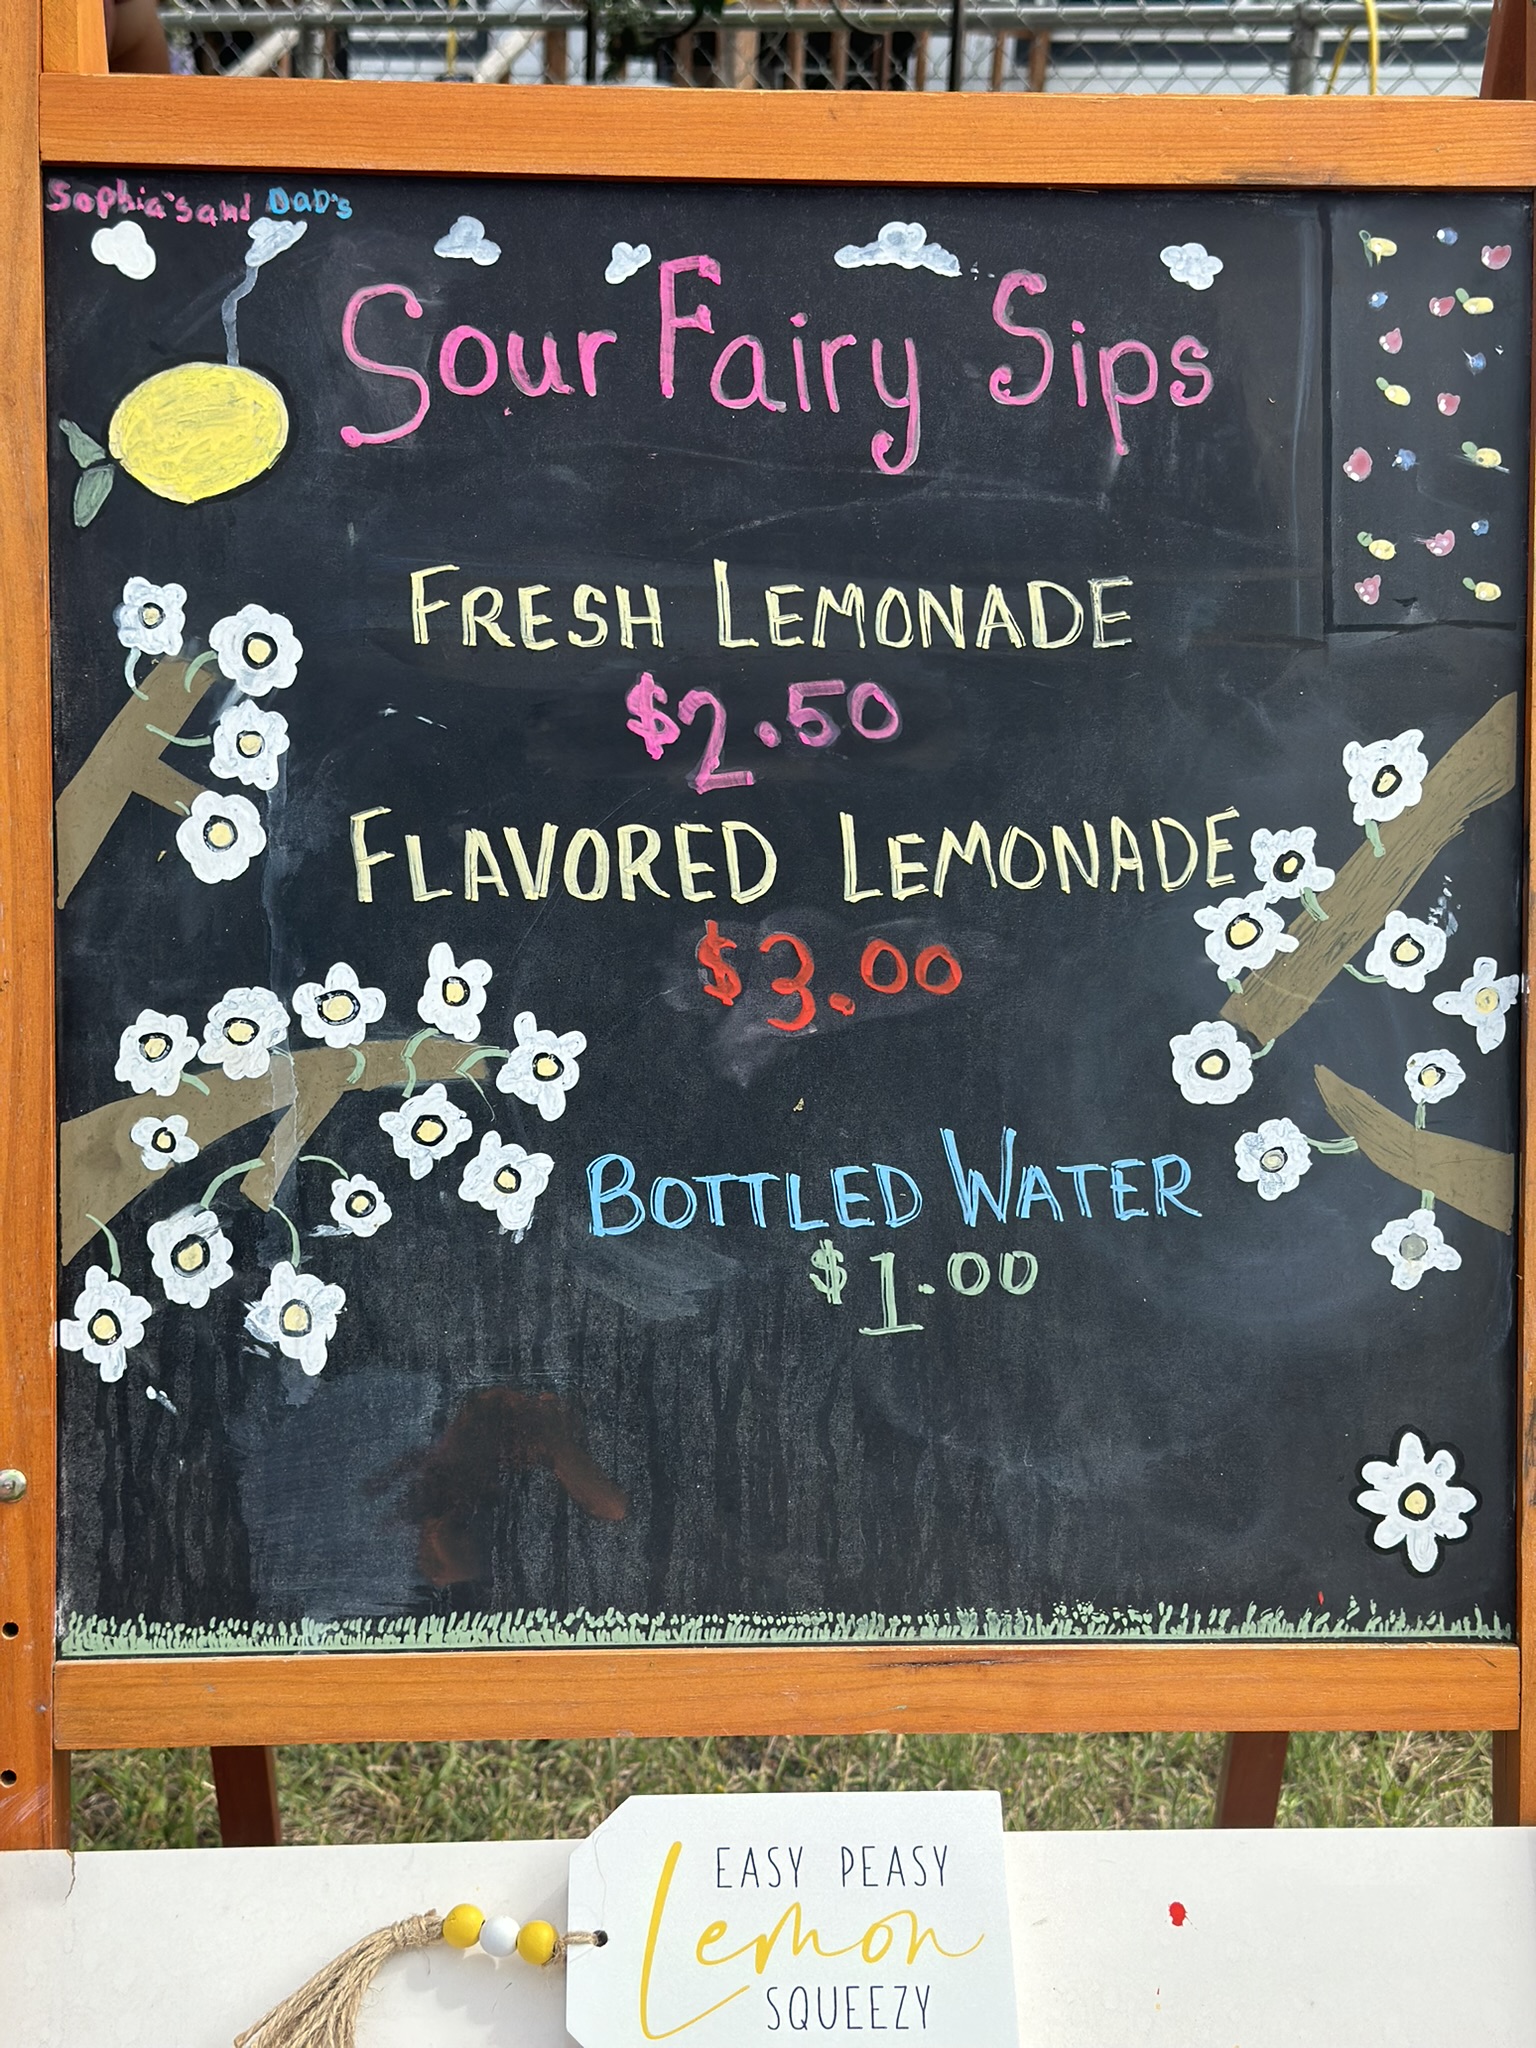 Sophia's and DaD's
Sour Fairy Sips
FRESH LEMONADE
$2.50
FLAVORED LEMONADE
$3.00
BOTTLED WATER
$1.00
EASY PEASY
Lemon
SQUEEZY